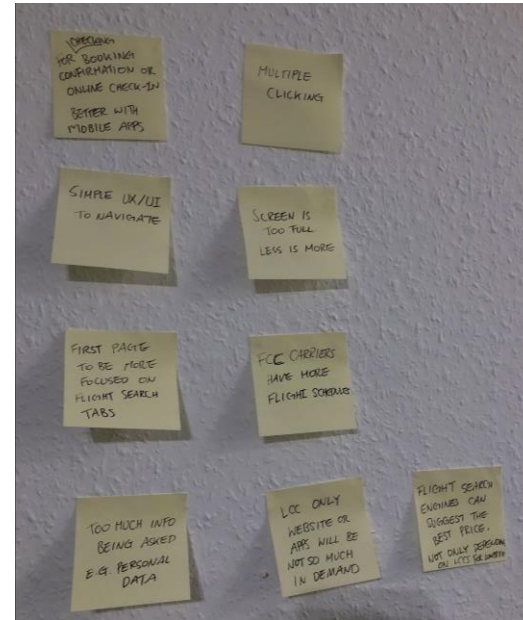 CHECKING
FOR BOOKING
CONFIRMATION OR
ONLINE CHECK-IN
BETTER WITH
MOBILE APPS
MULTIPLE
CLICKING
SIMPLE UX/UI
TO NAVIGATE
SCREEN IS
TOO FULL
LESS IS MORE
FIRST PAGE
TO BE MORE
FOCUSED ON
FLIGHT SEARCH
TABS
FCC CARRIERS
HAVE MORE
FLIGHT SCHEDULE
TOO MUCH INFO
BEING ASKED
E.G. PERSONAL
DATA
LCC ONLY
WEBSITE OR
APPS WILL BE
NOT SO MUCH
IN DEMAND
FLIGHT SEARCH
ENGINES CAN
SUGGEST THE
BEST PRICE.
NOT ONLY DEPENDING
ON LCCS